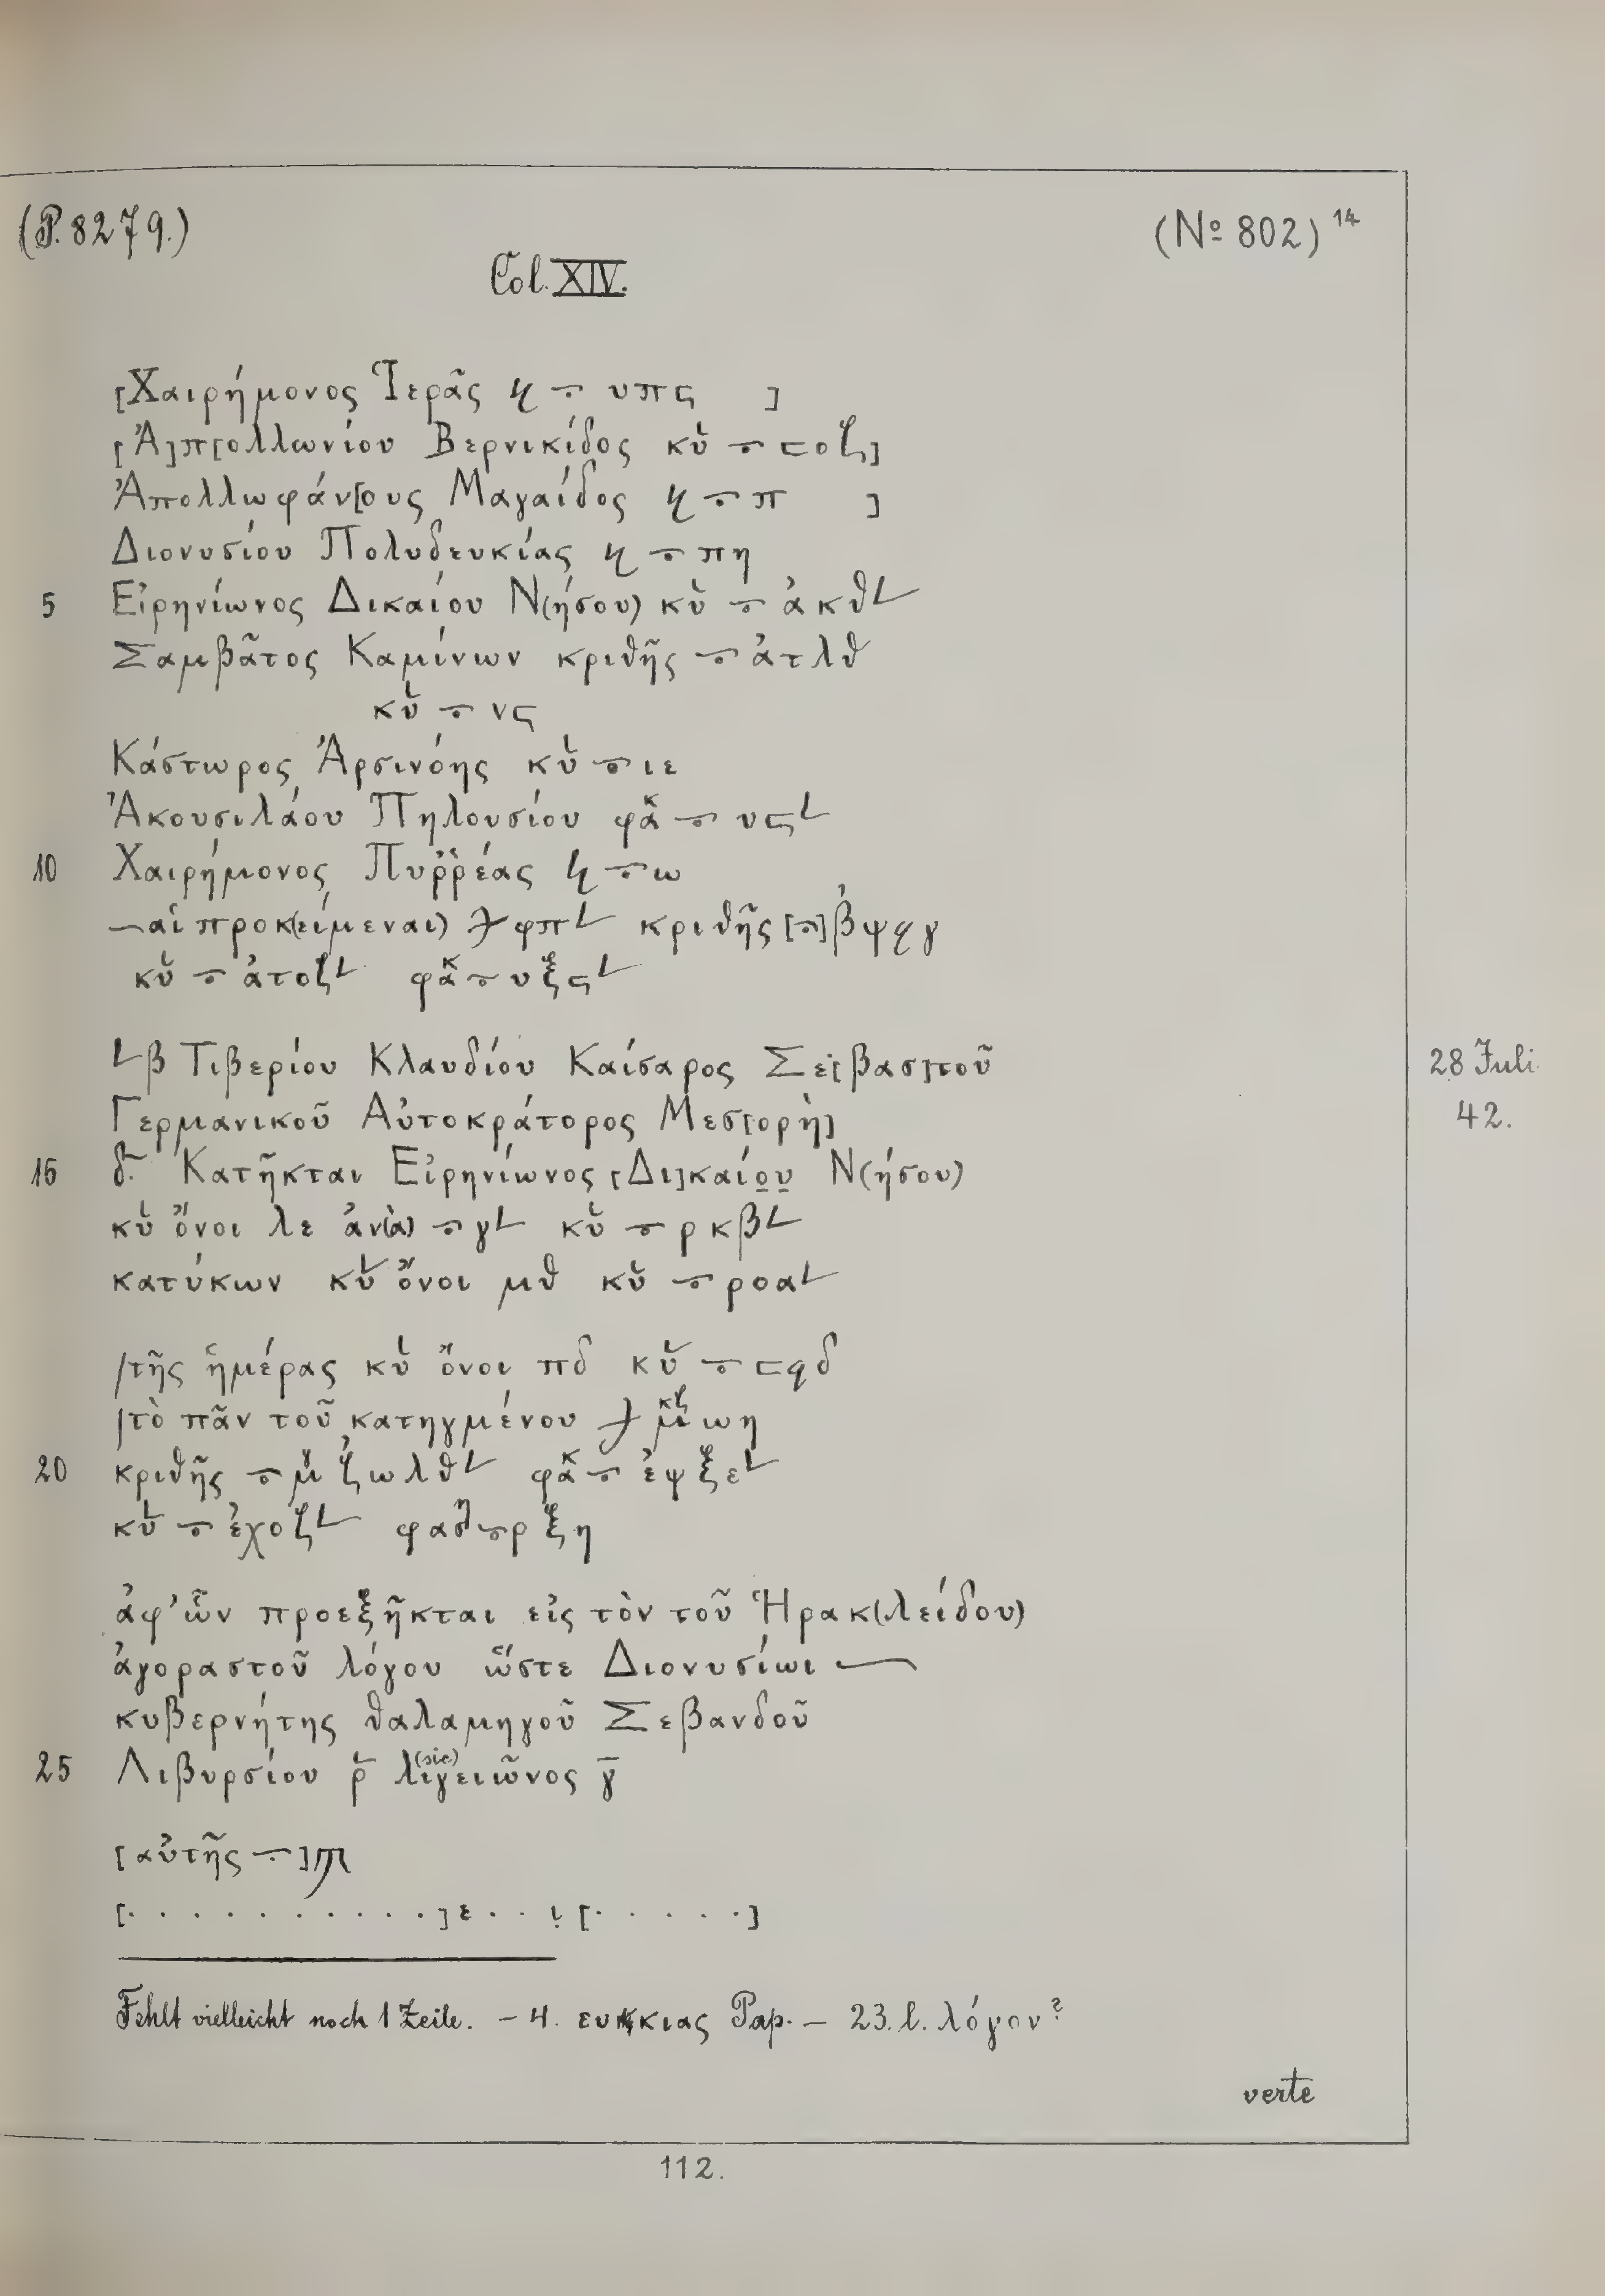 (P. 8279.)
(No 802) 14
Col. XIV.
[Χαιρήμονος Ἱερᾶς υπϛ ]
[Ἀ]π[ολλωνίου Βερνικίδος κυ σοζ]
Ἀπολλωφάν[ους Μαγαίδος π ]
Διονυσίου Πολυδευκίας πη
5 Εἰρηνίωνος Δικαίου Ν(ήσου) κυ ακθ 𐅵
Σαμβᾶτος Καμίνων κριθῆς ατλθ
κυ νϛ
Κάστωρος Ἀρσινόης κυ ιε
Ἀκουσιλάου Πηλουσίου φακ υϛ 𐅵
10 Χαιρήμονος Πυῤῥέας ω
αἱ προκ(είμεναι) φπ 𐅵 κριθῆς [ ] βψϙγ
κυ ατοζ 𐅵 φακ υξϛ 𐅵
L β Τιβερίου Κλαυδίου Καίσαρος Σε[βασ]τοῦ
28 Juli
Γερμανικοῦ Αὐτοκράτορος Μεσ[ορὴ]
42.
15 δ̄ Κατῆκται Εἰρηνίωνος [Δι]καίο̣υ̣ Ν(ήσου)
κυ ὄνοι λε ἀν(ὰ) γ 𐅵 κυ ρκβ 𐅵
κατύκων κυ ὄνοι μθ κυ ροα 𐅵
/τῆς ἡμέρας κυ ὄνοι πδ κυ σϙδ
/τὸ πᾶν τοῦ κατηγμένου μκζ ωη
20 κριθῆς μ ζωλθ 𐅵 φακ εψξε 𐅵
κυ εχοζ 𐅵 φαση ρξη
ἀφ’ ὧν προεξῆκται εἰς τὸν τοῦ Ἡρακ(λείδου)
ἀγοραστοῦ λόγου ὥστε Διονυσίωι
κυβερνήτης θαλαμηγοῦ Σεβανδοῦ
25 Λιβυρσίου ρ̄ λιγειῶνος (sic) γ̄
[αὐτῆς ]ϡ
[. . . . . . . . . . .]ε . . ι̣ [. . . . . .]
Fehlt vielleicht noch 1 Zeile. – 4. ευκκιας Pap. – 23. l. λόγον?
verte
112.